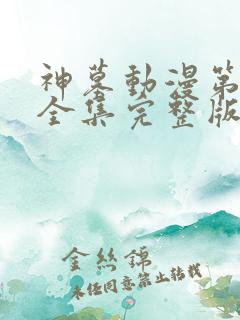 神墓動漫第
全集完整版
金絲錦
未经同意禁止转载